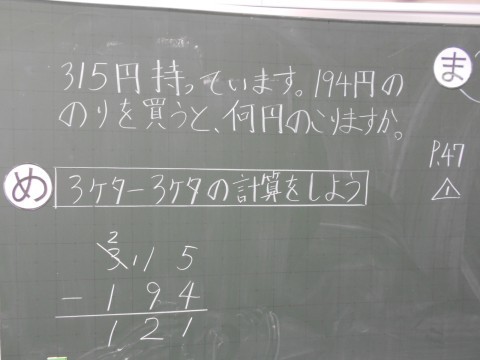 315円持っています。194円の
のりを買うと、何円のこりますか。
ま
P.47
⚠
め
3ケター3ケタの計算をしよう
2
3 11 5
- 1 9 4
1 2 1